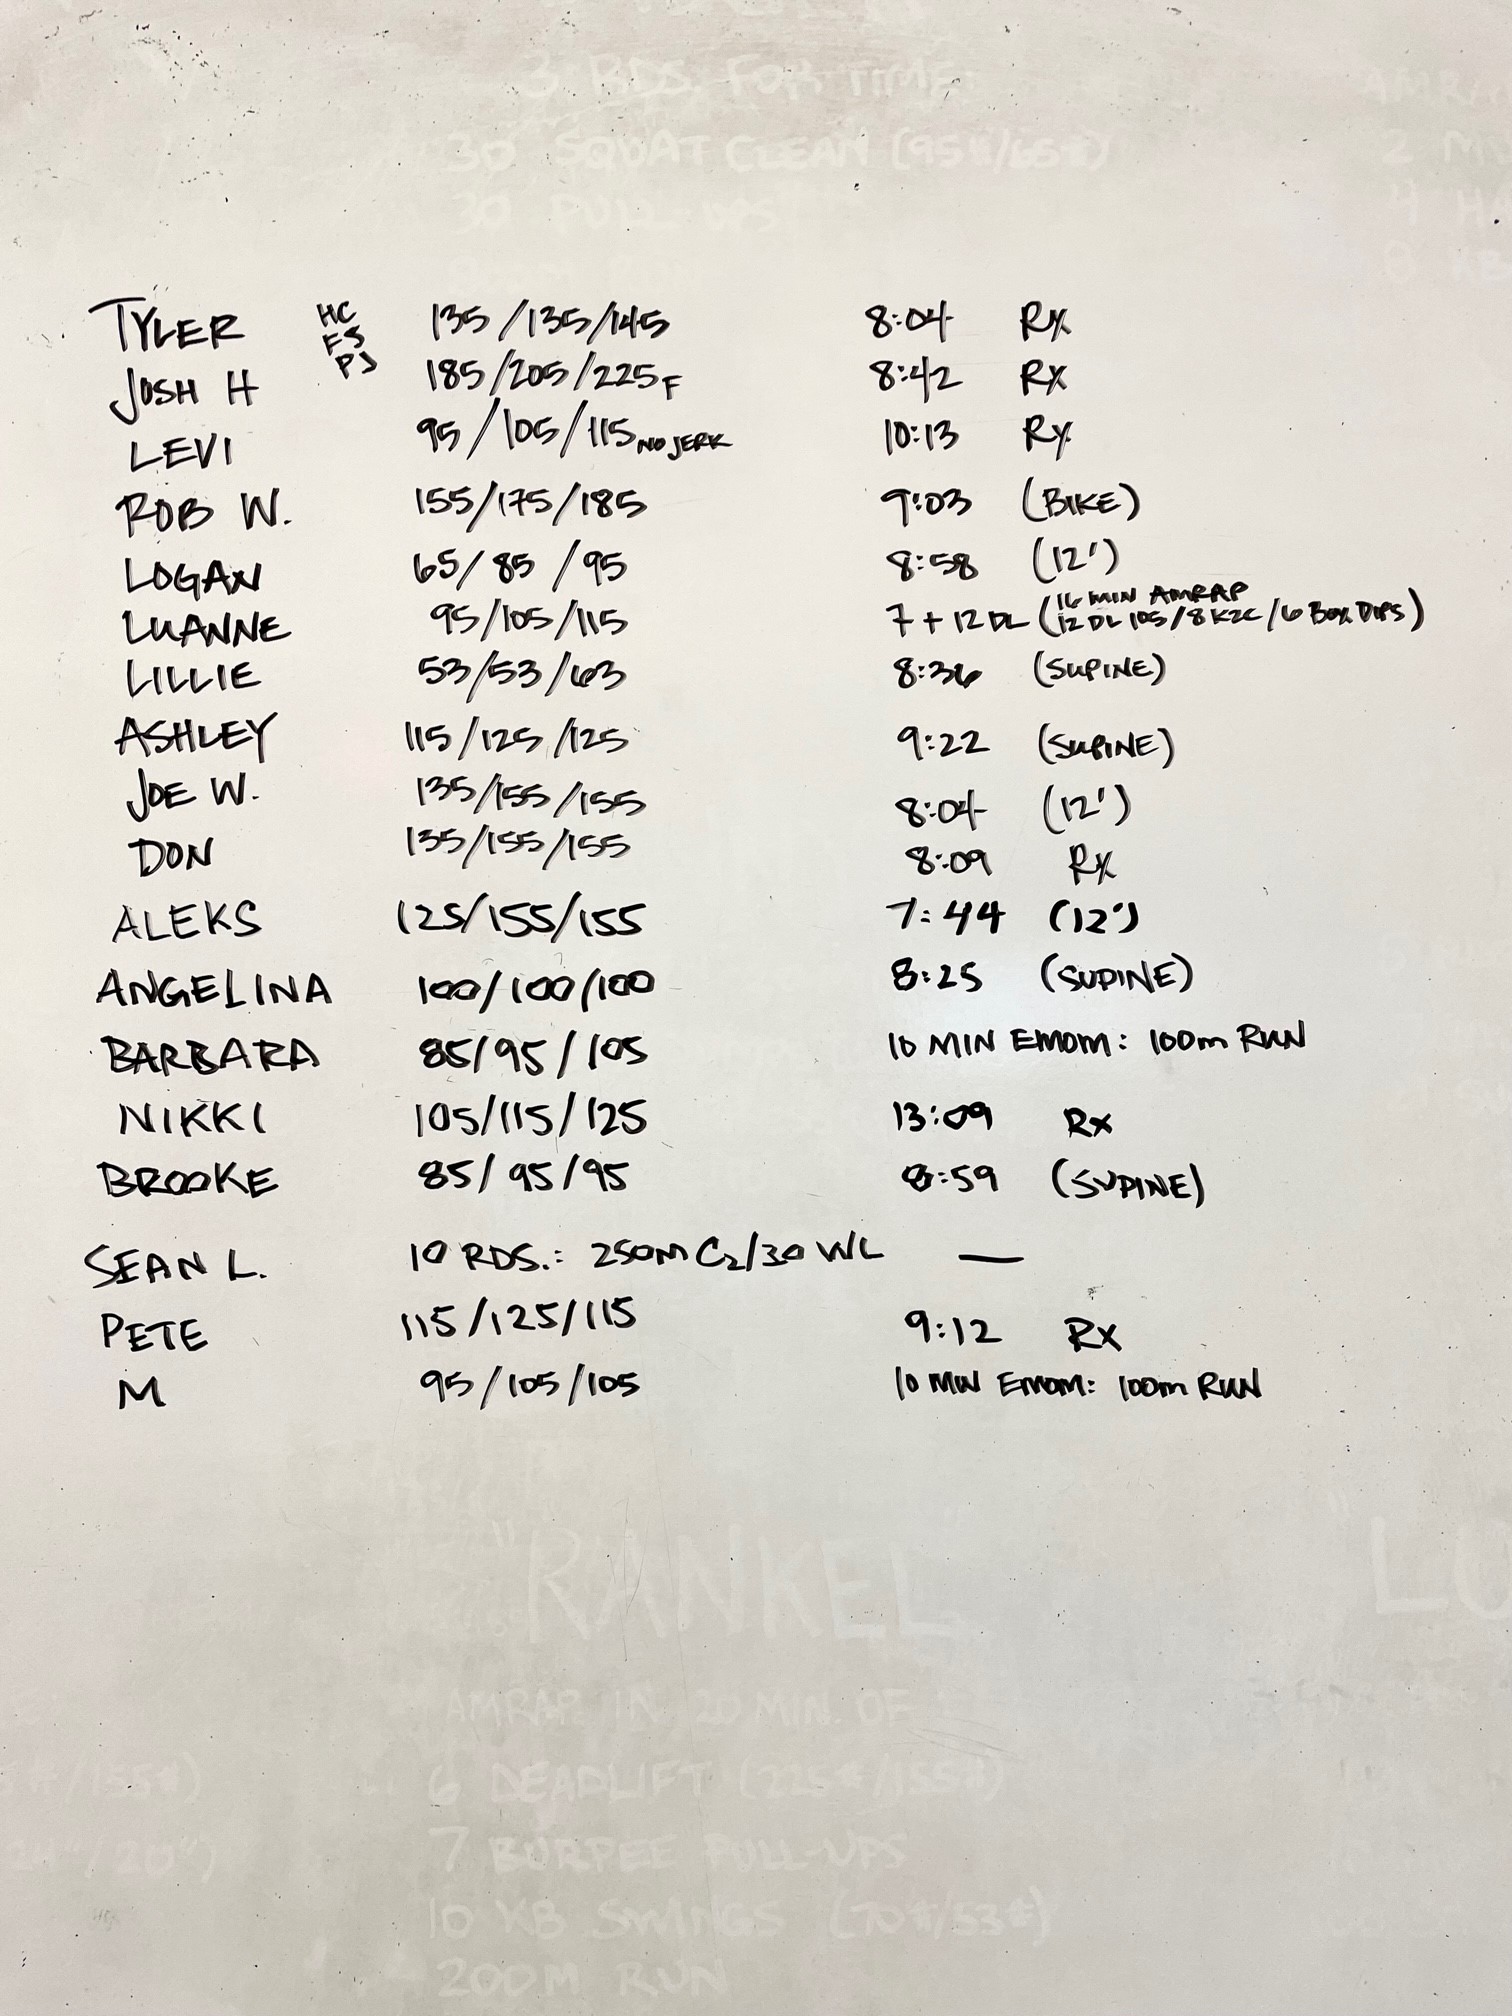 3 RDS. FOR TIME
30 SQUAT CLEAN (95#/65#)
30 PULL-UPS
TYLER HC FS PJ 135/135/145 8:04 Rx
JOSH H 185/205/225F 8:42 Rx
LEVI 95/105/115 NO JERK 10:13 Rx
ROB W. 155/175/185 9:03 (BIKE)
LOGAN 65/85/95 8:58 (12')
LUANNE 95/105/115 7 + 12 DL (16 MIN AMRAP 12 DL 105/8 K2C/6 BOX DIPS)
LILLIE 53/53/63 8:36 (SUPINE)
ASHLEY 115/125/125 9:22 (SUPINE)
JOE W. 135/155/155 8:04 (12')
DON 135/155/155 8:09 Rx
ALEKS 125/155/155 7:44 (12')
ANGELINA 100/100/100 8:25 (SUPINE)
BARBARA 85/95/105 10 MIN EMOM: 100m RUN
NIKKI 105/115/125 13:09 Rx
BROOKE 85/95/95 8:59 (SUPINE)
SEAN L. 10 RDS.: 250M C2/30 WL —
PETE 115/125/115 9:12 Rx
M 95/105/105 10 MIN EMOM: 100m RUN
"RANKEL
AMRAP IN 20 MIN. OF
6 DEADLIFT (225#/155#)
7 BURPEE PULL-UPS
10 KB SWINGS (70#/53#)
200M RUN